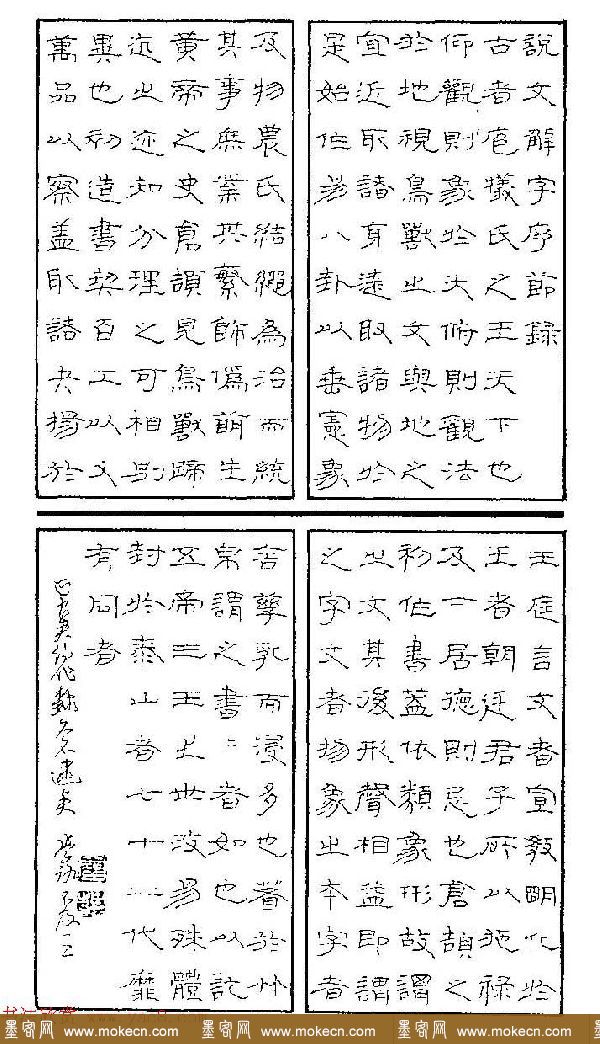 說文解字序節錄
古者庖犧氏之王天下也
仰觀則象於天俯則觀法
於地視鳥獸之文與地之
宜近取諸身遠取諸物於
是始作易八卦以垂憲象
及物農氏結繩為治而統
其事庶業其繁飾偽萌生
黃帝之史倉頡見鳥獸蹄
迒之迹知分理之可相別
異也初造書契百工以乂
萬品以察蓋取諸夬揚於
王庭言文者宣教明化於
王者朝廷君子所以施祿
及下居德則忌也倉頡之
初作書蓋依類象形故謂
之文其後形聲相益即謂
之字文者物象之本字者
言孳乳而浸多也著於竹
帛謂之書〻者如也以訖
五帝三王之世改易殊體
封於泰山者七十二代靡
有同者
墨客网 www.mokecn.com 墨客网 www.mokecn.com 墨客网 www.mokecn.com